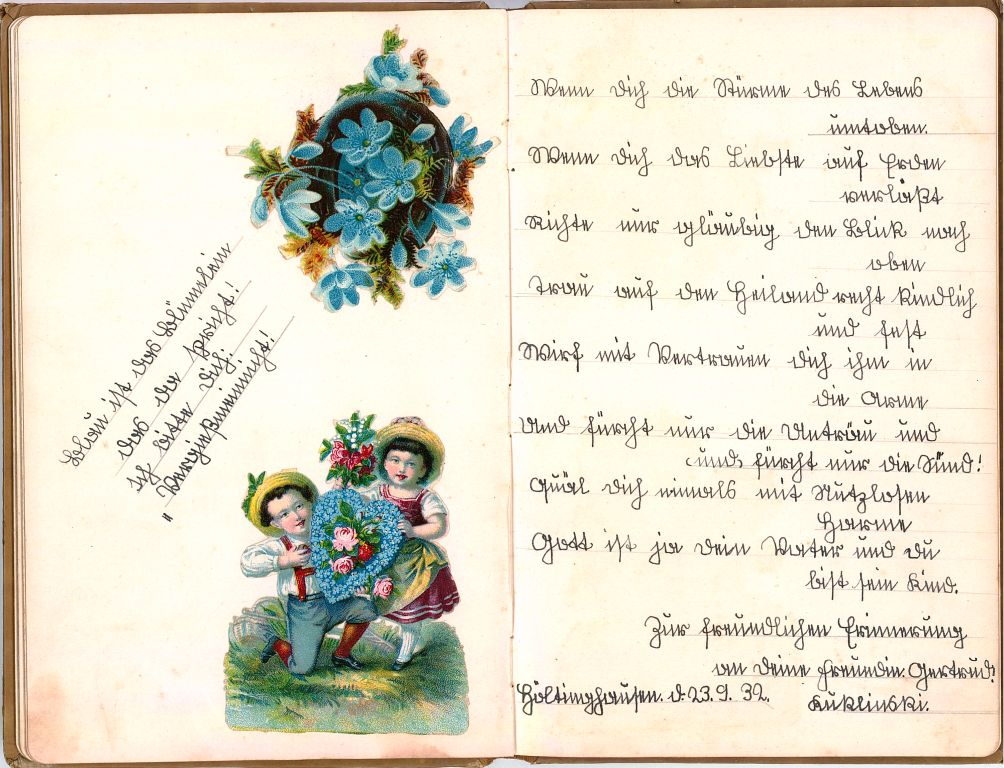 Blau ist das Blümelein
das da spricht!
ich bitte dich:
"Vergießmeinnicht!
Wenn dich die Stürme des Lebens
umtoben.
Wenn dich das Liebste auf Erden
verläßt
Richte nur gläubig den Blick nach
oben
Trau auf den Heiland recht kindlich
und fest
Wirf mit Vertrauen dich ihm in
die Arme
Und fürcht nur die Untreu und
und fürcht nur die Sünd!
Quäl dich niemals mit Nutzlosen
Harme
Gott ist ja dein Vater und du
bist sein Kind.
Zur freundlichen Erinnerung
an deine Freundin Gertrud
Höltinghausen. d. 23.9.32. Kuklinski.